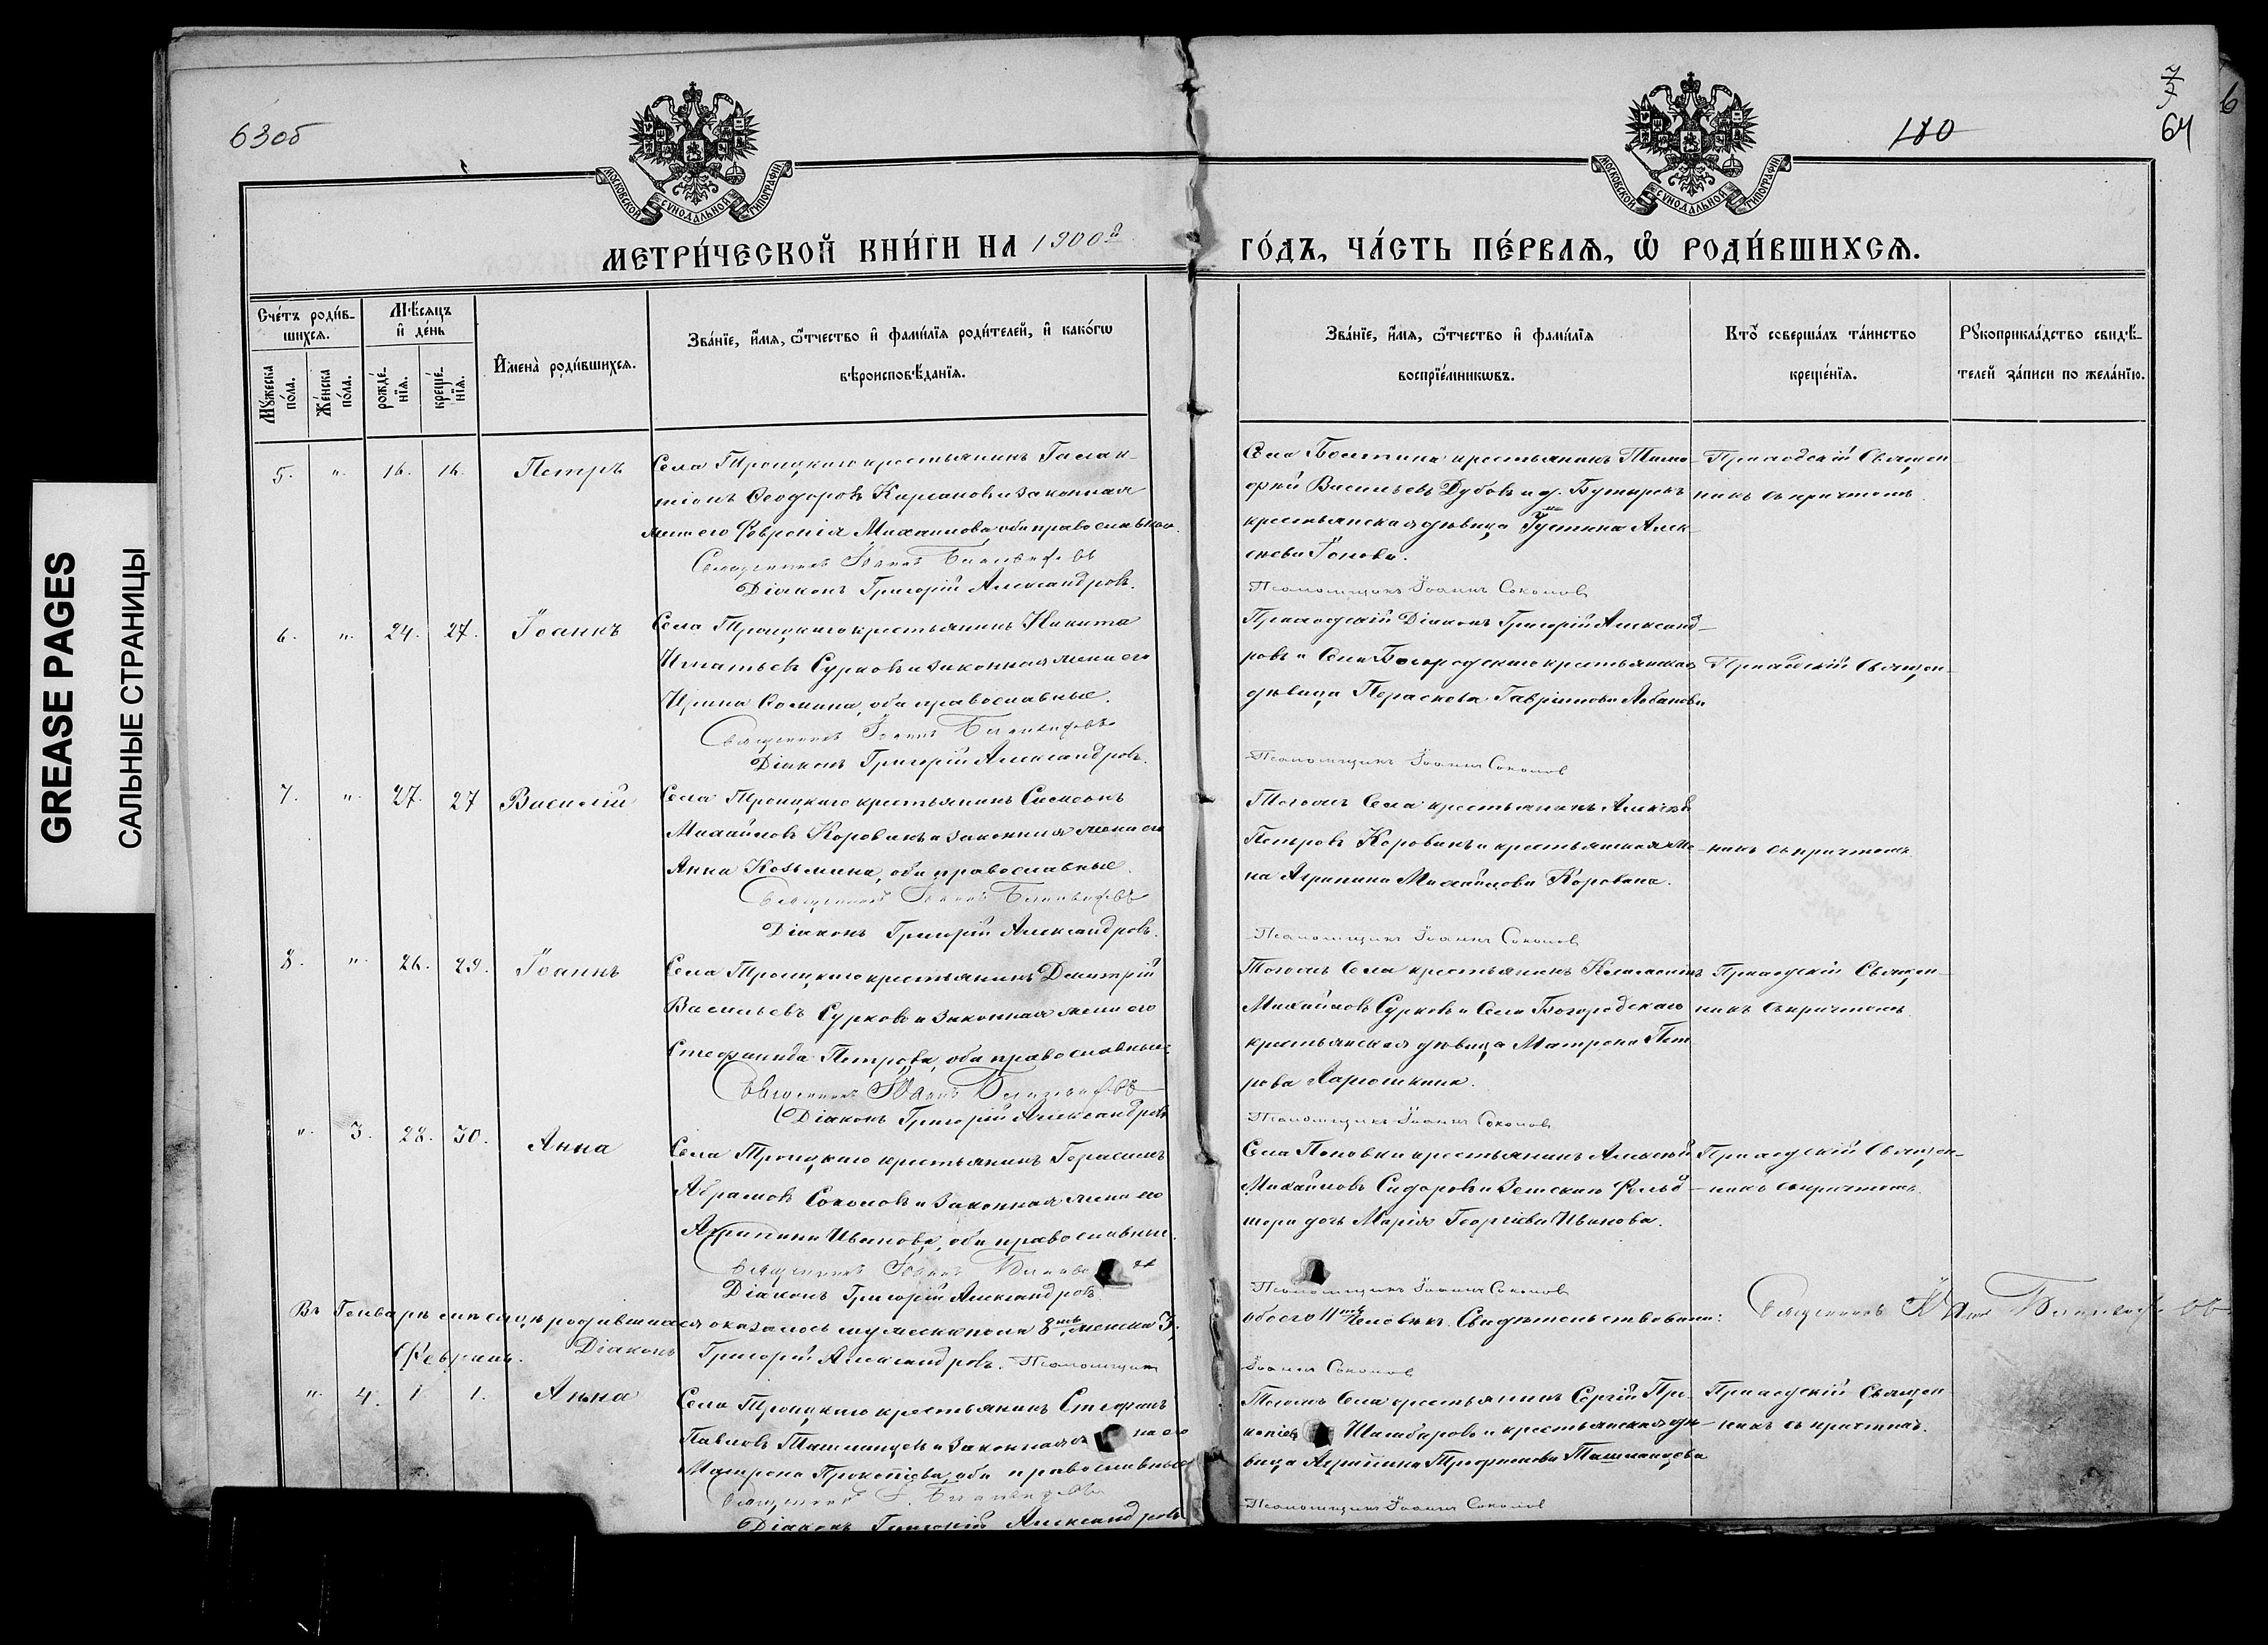 63об
180
7
3
64
6
GREASE PAGES
САЛЬНЫЕ СТРАНИЦЫ
МОСКОВСКОЙ СѴНОДАЛЬНОЙ ТИПОГРАФІИ
МОСКОВСКОЙ СѴНОДАЛЬНОЙ ТИПОГРАФІИ
МЕТРИ́ЧЕСКОЙ КНИ́ГИ НА 1900й
ГО́ДЪ, ЧА́СТЬ ПЕ́РВАѦ, Ѿ РОДИ́ВШИХСѦ.
Сче́тъ роди́в-
шихсѧ.
Мꙋ́жеска по́ла.
Же́нска по́ла.
Мѣ́сѧцъ
и҆ де́нь
рожде́-
нїѧ.
креще́-
нїѧ.
И҆мена̀ роди́вшихсѧ.
Зва́нїе, и҆́мѧ, ѻ҆́тчество и҆ фами́лїѧ роди́телей, и҆ како́гѡ
вѣроисповѣ́данїѧ.
Зва́нїе, и҆́мѧ, ѻ҆́тчество и҆ фами́лїѧ
воспрїе́мникѡвъ.
Кто̀ соверша́лъ та́инство
креще́нїѧ.
Рꙋкоприкла́дство свидѣ́-
телей за́писи по жела́нїю.
5. „ 16. 16. Петръ
Села Троицкаго крестьянинъ Галак-
тіонъ Ѳеодоровъ и законная
жена его Ѳевронія Михаилова, оба православные.
Священникъ Іоаннъ
Діаконъ Григорій Александровъ.
Села крестьянинъ Тимо-
фей Васильевъ Дубовъ и д. Бутырокъ
крестьянская дѣвица Іустина Алек-
сѣева
Псаломщикъ Іоаннъ Соколовъ
Приходскій Священ-
никъ съ причтомъ.
6. „ 24. 27. Іоаннъ
Села Троицкаго крестьянинъ Никита
Игнатьевъ Сурковъ и законная жена его
Ирина Ѳомина, оба православные.
Священникъ Іоаннъ
Діаконъ Григорій Александровъ.
Приходскій Діаконъ Григорій Александ-
ровъ и Села Богородскаго крестьянская
дѣвица Параскева Гавріилова
Псаломщикъ Іоаннъ Соколовъ
Приходскій Священ-
7. „ 27. 27 Василій
Села Троицкаго крестьянинъ Симеонъ
Михайловъ Коровинъ и законная жена его
Анна Козьмина, оба православные.
Священникъ Іоаннъ
Діаконъ Григорій Александровъ.
Тогожъ Села крестьянинъ Алексѣй
Петровъ Коровинъ и крестьянская же-
на Агрипина Михайлова Коровина.
Псаломщикъ Іоаннъ Соколовъ
никъ съ причтомъ.
8. „ 26. 29. Іоаннъ
Села Троицкаго крестьянинъ Димитрій
Васильевъ Сурковъ и законная жена его
Стефанида Петрова, оба православные.
Священникъ Іоаннъ
Діаконъ Григорій Александровъ
Тогожъ Села крестьянинъ
Михайловъ Сурковъ и Села Богородскаго
крестьянская дѣвица Матрона Пет-
рова
Псаломщикъ Іоаннъ Соколовъ
Приходскій Священ-
никъ съ причтомъ.
„ 3. 28. 30. Анна
Села Троицкаго крестьянинъ Герасимъ
Абрамовъ Соколовъ и законная жена его
Агрипина Иванова, оба православные.
Священникъ Іоаннъ
Діаконъ Григорій Александровъ
Села Поповки крестьянинъ Алексѣй
Михайловъ Сидоровъ и Земскаго Фельд-
шера дочь Марія Георгіева Иванова.
Псаломщикъ Іоаннъ Соколовъ
Приходскій Священ-
никъ съ причтомъ.
Въ Генварѣ мѣсяцѣ родившихся оказалось мужеска пола 8мь, женска 3,
обоего 11ть человѣкъ. Свидѣтельствовали: Священникъ Іоаннъ
Февраль. Діаконъ Григорій Александровъ. Псаломщикъ
Іоаннъ Соколовъ
„ 4. 1. 1. Анна
Села Троицкаго крестьянинъ Стефанъ
Павловъ и законная на его
Матрона Прокопіева, оба православные
Священникъ І.
Діаконъ Григорій Александровъ
Тогожъ Села крестьянинъ Сергій Про-
копіевъ и крестьянская дѣ-
вица Агрипина Трофимова
Псаломщикъ Іоаннъ Соколовъ
Приходскій Священ-
никъ съ причтомъ.